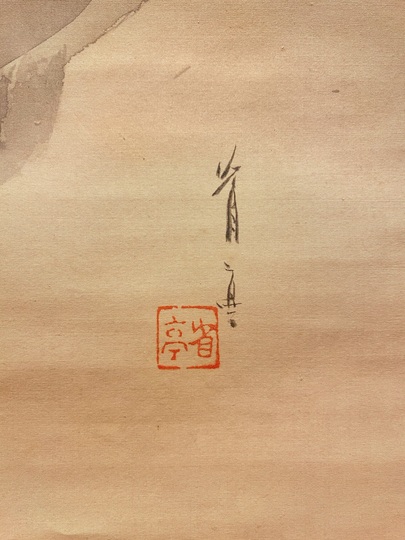 省亭
省亭